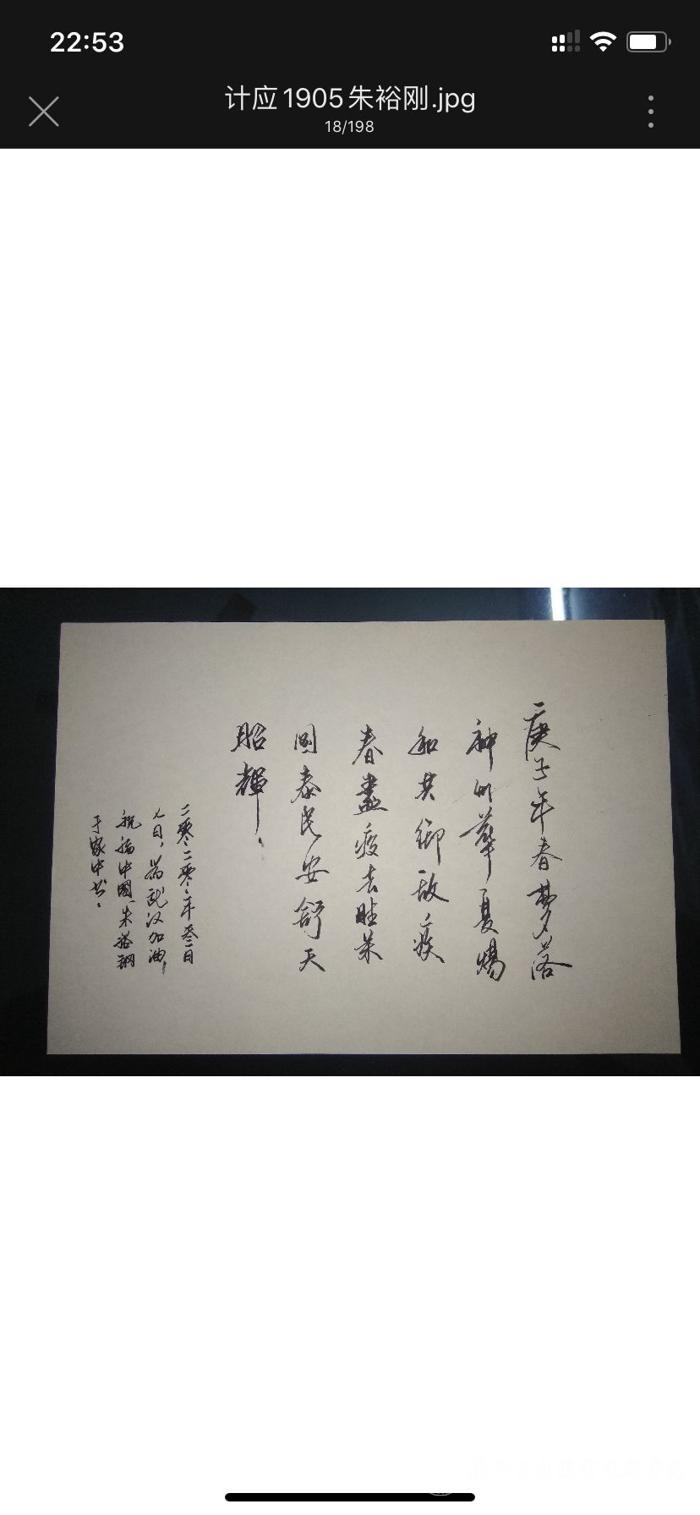 22:53
计应1905朱裕刚.jpg
18/198
庚子年春梦落
神州華夏煬
和其御敌疾
春盡疫去旺来
国泰民安舒天
昭輝
二零二零年叁月
九日，為武汉加油，
祝福中國 朱裕钢
于家中书。